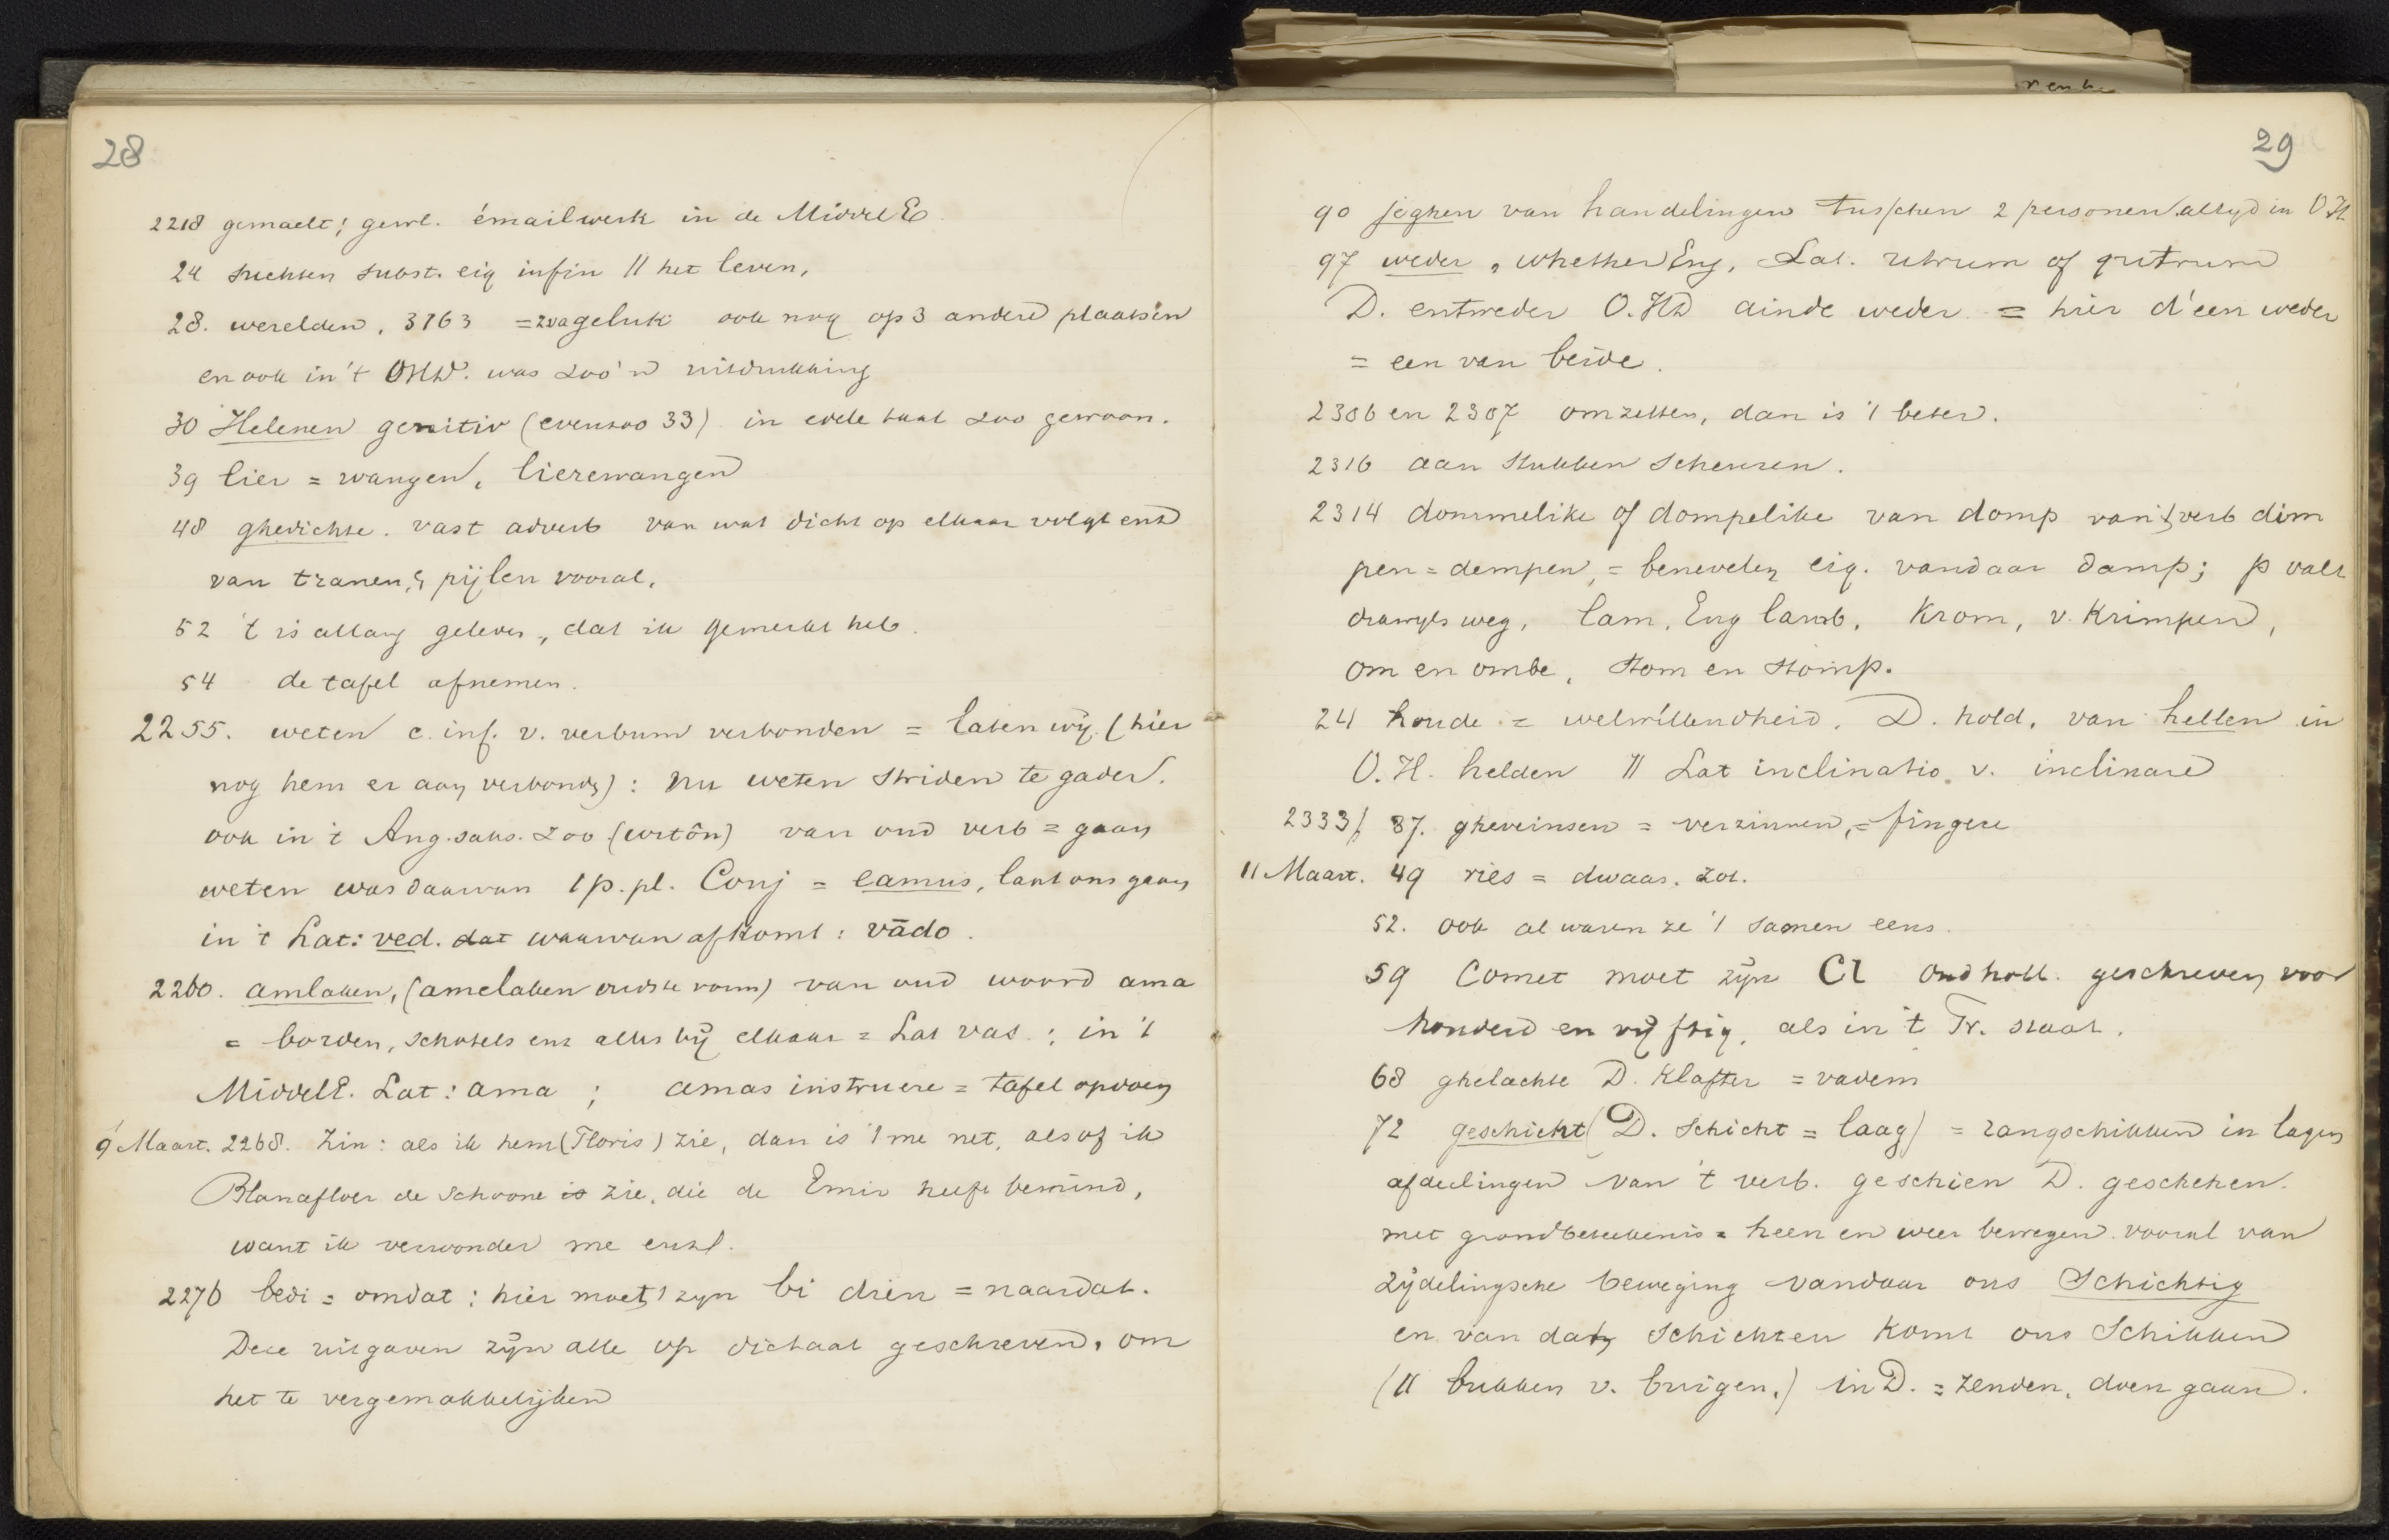 28
2218 gemaelt; gewl. émailwerk in de MiddelE.
24 suchten subst. eig infin // het leven,
28. werelden, 3763 = geluk ook nog op 3 andere plaatsen
en ook in 't OHD. was zoo'n uitdrukking
30 Helenen genitiv (evenzoo 33) in edele taal zoo gewoon.
39 lier = wangen, lierewangen
48 ghedichte. vast adverb van wat dicht op elkaar volgt ens
van tranen, & pijlen vooral.
52 't is allang geleden, dat ik gemerkt heb.
54 de tafel afnemen.
2255. weten c. inf. v. verbum verbonden = laten wij (hier
nog hem er aan verbonden): nu weten striden te gader.
ook in 't Ang. saks. zoo (wtôn) van oud verb = gaan
weten was daarvan 1 p. pl. Conj = eamus, laat ons gaan
in 't Lat: ved. dat waarvan afkomt: vādo.
2260. amlaken, (amelaken oudste vorm) van oud woord ama
= borden, schotels enz alles bij elkaar = Lat vas.; in 't
MiddelE. Lat: ama; amas instruere = tafel opdoen
9 Maart. 2268. Zin: als ik hem (Floris) zie, dan is 't me net, alsof ik
Blanafloer de schoone is zie, die de Emir heeft bemind,
want ik verwonder me enz.
2276 bedi = omdat: hier moet 't zyn bi dien = naardat.
Deze uitgaven zijn alle op dictaat geschreven, om
het te vergemakkelijken
29
90 jeghen van handelingen tusschen 2 personen altyd in O.H.
97 weder, whether Eng, Lat. utrum of qutrum
D. entweder O.HD ainde weder = hier d'een weder
= een van beide.
2306 en 2307 omzetten, dan is 't beter.
2316 aan stukken scheuren.
2314 dommelike of dompelike van domp van 't verb dim
pen = dempen, = benevelen eig. vandaar damp; p valt
dikwijls weg, lam, Eng lamb, krom, v. Krimpen,
om en ombe, stom en stomp.
24 houde = welwillendheid. D. hold, van hellen in
O.H. helden // Lat inclinatio v. inclinare
2333/ 37. gheveinsen = verzinnen, = fingere
11 Maart. 49 ries = dwaas. zot.
52. ook al waren ze 't samen eens.
59 Comet moet zijn Cl oud holl. geschreven voor
honderd en vijftig, als in 't Fr. staat.
68 ghelachte D. Klafter = vadem
72 geschicht (D. Schicht = laag) = rangschikken in lagen
afdeelingen van 't verb. geschien D. geschehen.
met grondbeteekenis = heen en weer bewegen vooral van
zijdelingsche beweging vandaar ons Schichtig
en van dat schichten komt ons Schikken
(// bukken v. buigen.) in D. = zenden, doen gaan.